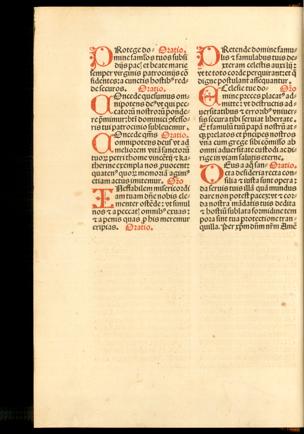 Protege do- Oratio.
mine famłos tuos subsi
dijs pac&: et beate marie
semper virginis patrocinijs cō
fidentes: a cunctis hostib⁹ red-
de securos. Oratio.
Concede quesumus om-
nipotens de⁹ vt qui pec-
catorū nostrorū ponde-
re premimur: bti dominici pfesso-
ris tui patrocinio subleuemur.
Concede q̄ms Oratio.
omnipotens deus vt ad
meliorem vitā sanctorū
tuorū petri thome vincentij & ka-
therine exempla nos prouocent:
quaten⁹ quoɀ memoriā agim⁹
etiam actus imitemur. Oro
Ineffabilem misericordi
am tuam dn̄e nobis ele-
menter ostēde: vt simul
nos & a peccat̄ omnib⁹ exuas:
& a penis quas p his meremur
eripias. Oratio.
Pretende domine famu-
lis & famulabus tuis de-
xteram celestis auxilij:
vt te toto corde perquirant: &
digne postulant assequantur.
Ecclesie tue do- Oro
mine preces placat⁹ ad-
mitte: vt destructis ad-
uersitatibus & errorib⁹ vniuer-
sis secura tibi seruiat libertate.
Et famulū tuū papā nostrū at-
q3 prelatos & principes nostros
vna cum grege sibi cōmisso ab
omni aduersitate custodi: ac di-
rige in viam salutis eterne.
Deus a quo san- Oratio.
cta desideria recta con-
silia & iusta sunt opera:
da seruis tuis illā quā mundus
dare non potest pacē: vt & cor-
da nostra mādatis tuis dedita
& hostiū sublata formidine tem-
pora sint tua protectione tran-
quilla. Per xp̄m dn̄m nr̄m Amē